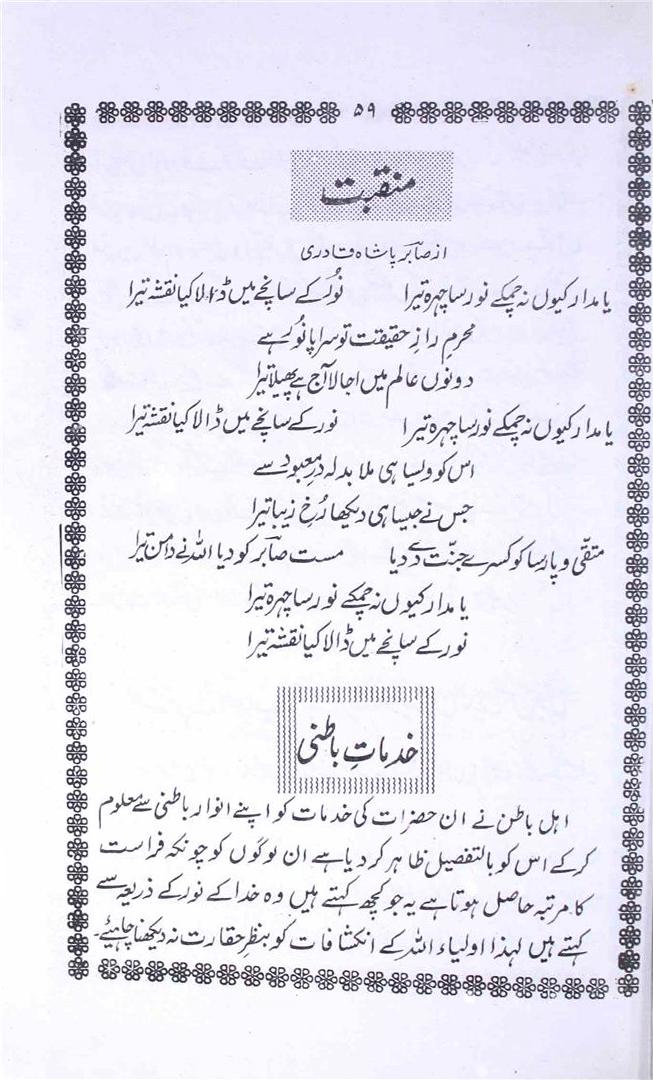 ۵۹
منقبت
از صابر باشاہ قادری
یا مدار کیوں نہ چمکے نور سا چہرہ تیرا نور کے سانچے میں ڈالا کیا نقشہ تیرا
محرمِ رازِ حقیقت تو سراپا نور ہے
دونوں عالم میں اجالا آج ہے پھیلا تیرا
یا مدار کیوں نہ چمکے نور سا چہرہ تیرا نور کے سانچے میں ڈالا کیا نقشہ تیرا
اس کو ویسا ہی ملا بدلہ درِ معبود سے
جس نے جیسا ہی دیکھا رُخِ زیبا تیرا
متقی و پارسا کو جنت دے دیا مست صابر کو دیا اللہ نے دامن تیرا
یا مدار کیوں نہ چمکے نور سا چہرہ تیرا
نور کے سانچے میں ڈالا کیا نقشہ تیرا
خدماتِ باطنی
اہل باطن نے ان حضرات کی خدمات کو اپنے انوار باطنی سے معلوم
کر کے اس کو بالتفصیل ظاہر کر دیا ہے ان لوگوں کو چونکہ فراست
کا مرتبہ حاصل ہوتا ہے یہ جو کچھ کہتے ہیں وہ خدا کے نور کے ذریعہ سے
کہتے ہیں لہذا اولیاء اللہ کے انکشافات کو بنظرِ حقارت نہ دیکھنا چاہیئے۔